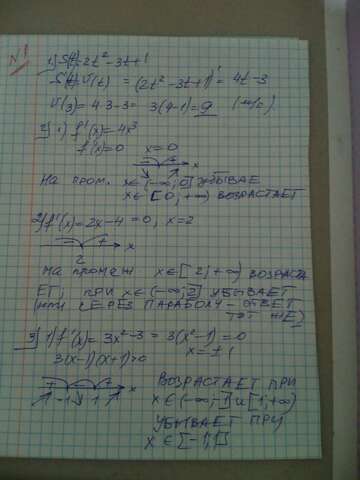 №1
1) S(t)=2t²-3t+1
S'(t)=V(t) = (2t²-3t+1)' = 4t-3
V(3)=4·3-3= 3(4-1)=9 (м/с)
2) 1) f'(x)=4x³
f'(x)=0 x=0
- + x
0
на пром. x∈(-∞;0] УБЫВАЕ
x∈[0;+∞) ВОЗРАСТАЕТ
2) f'(x)=2x-4=0, x=2
- + x
2
на промеж x∈[2;+∞) ВОЗРАСТА
ЕТ; ПРИ x∈(-∞;2] УБЫВАЕТ
(или ЧЕРЕЗ ПАРАБОЛУ - ОТВЕТ
ТОТ ЖЕ)
3) 1) f'(x)=3x²-3=3(x²-1)=0
3(x-1)(x+1)>0 x=±1
+ - + x
-1 1
ВОЗРАСТАЕТ ПРИ
x∈(-∞;-1]и[1;+∞)
УБЫВАЕТ ПРИ
x∈[-1;1]